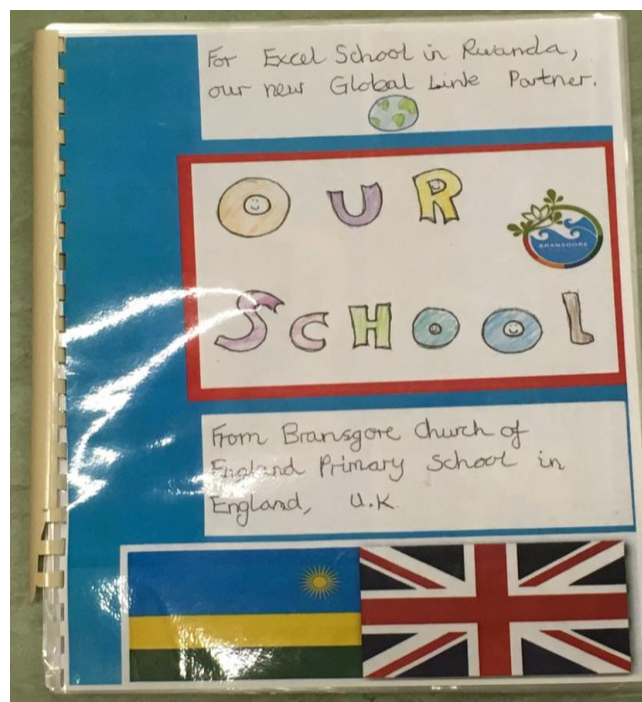 For Excel School in Rwanda,
our new Global Link Partner.
OUR
BRANSGORE
SCHOOL
From Bransgore Church of
England Primary School in
England, U.K